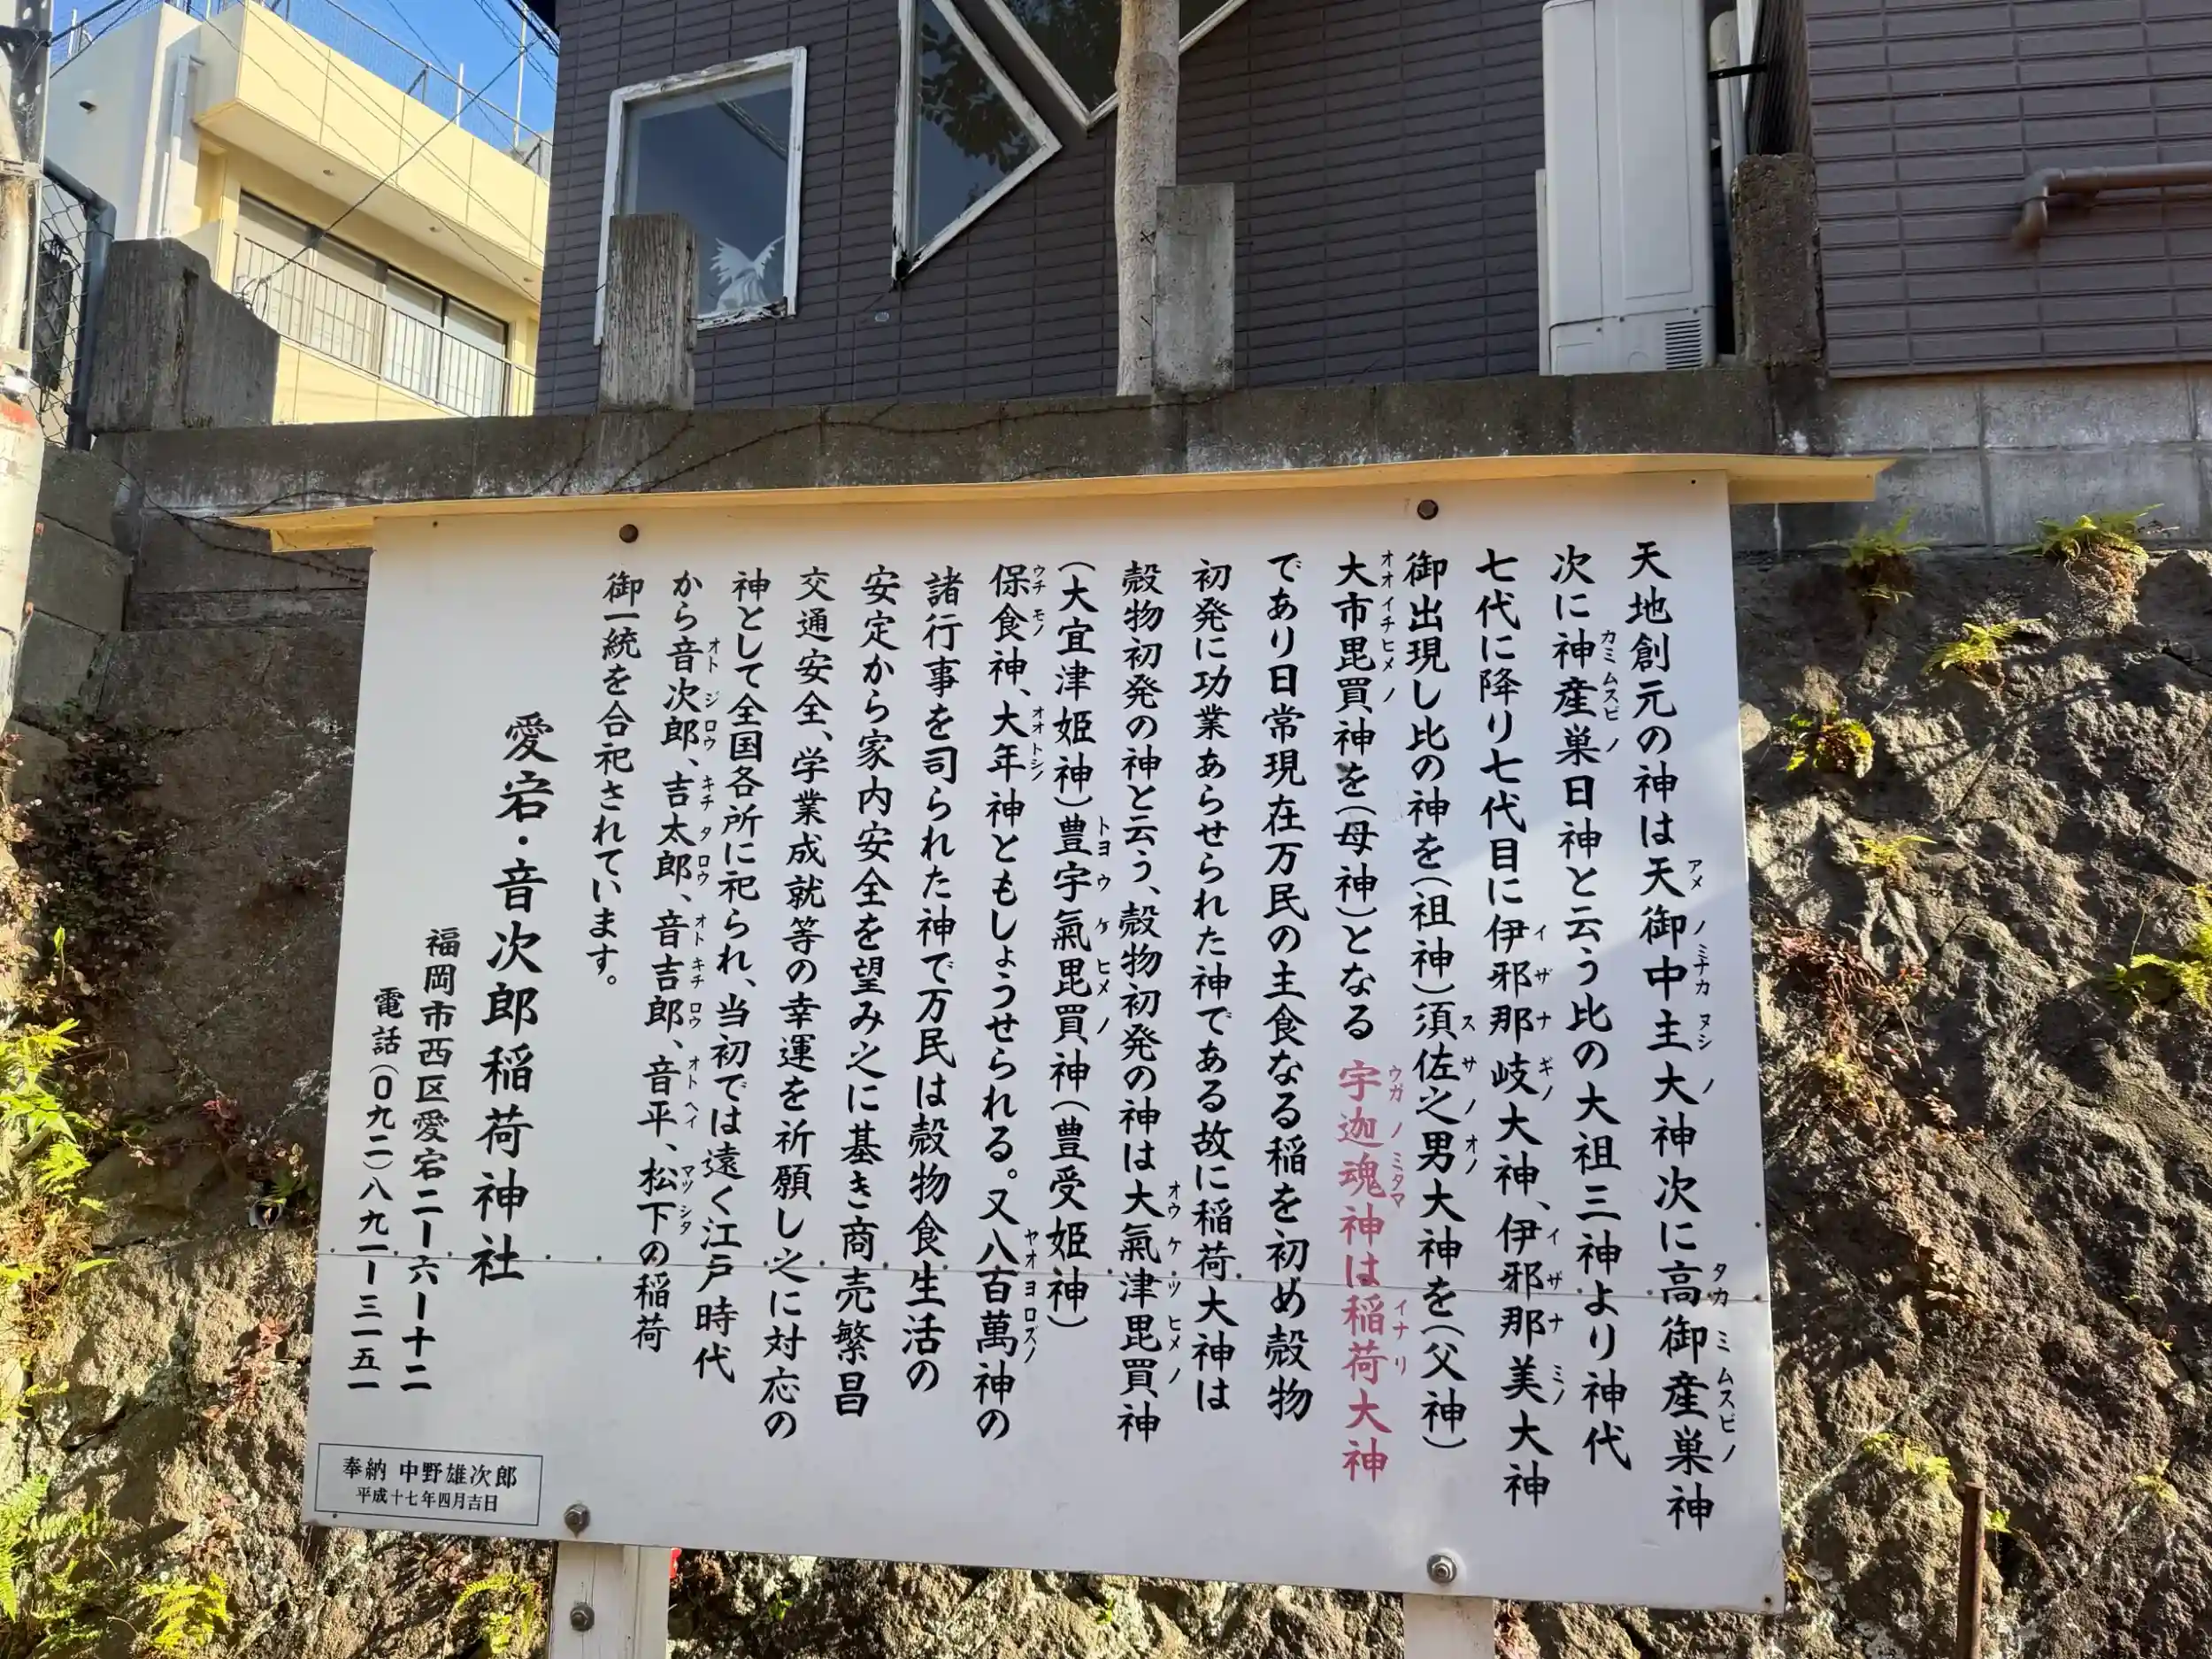 天地創元の神は天御中主大神次に高御産巣神
次に神産巣日神と云う比の大祖三神より神代
七代に降り七代目に伊邪那岐大神、伊邪那美大神
御出現し比の神を(祖神)須佐之男大神を(父神)
大市毘買神を(母神)となる 宇迦魂神は稲荷大神
であり日常現在万民の主食なる稲を初め殻物
初発に功業あらせられた神である故に稲荷大神は
殻物初発の神と云う、殻物初発の神は大氣津毘買神
(大宜津姫神)豊宇氣毘買神(豊受姫神)
保食神、大年神ともしょうせられる。又八百萬神の
諸行事を司られた神で万民は殻物食生活の
安定から家内安全を望み之に基き商売繁昌
交通安全、学業成就等の幸運を祈願し之に対応の
神として全国各所に祀られ、当初では遠く江戸時代
から音次郎、吉太郎、音吉郎、音平、松下の稲荷
御一統を合祀されています。
愛宕・音次郎稲荷神社
福岡市西区愛宕二ー六ー十二
電話(〇九二)八九一ー三一五一
奉納 中野雄次郎
平成十七年四月吉日